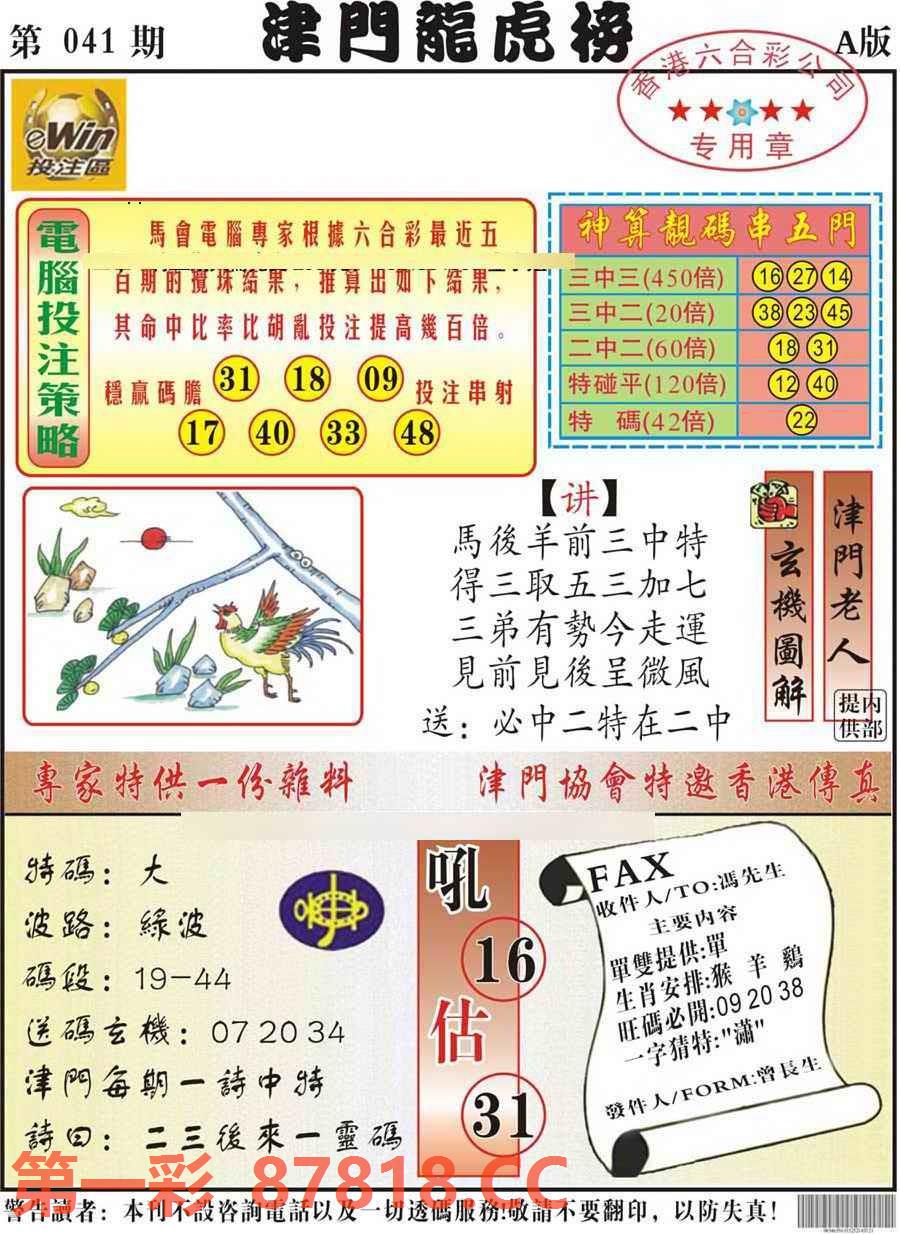 第 041 期
津門龍虎榜
A版
香港六合彩公司
专用章
eWin
投注區
電腦投注策略
馬會電腦專家根據六合彩最近五
百期的攪珠結果，推算出如下結果，
其命中比率比胡亂投注提高幾百倍。
穩贏碼膽 31 18 09 投注串射
17 40 33 48
神算靚碼串五門
三中三(450倍) 16 27 14
三中二(20倍) 38 23 45
二中二(60倍) 18 31
特碰平(120倍) 12 40
特 碼(42倍) 22
【讲】
馬後羊前三中特
得三取五三加七
三弟有勢今走運
見前見後呈微風
送：必中二特在二中
玄機圖解
津門老人
内部提供
專家特供一份雜料
津門協會特邀香港傳真
特碼：大
波路：綠波
碼段：19-44
送碼玄機：07 20 34
津門每期一詩中特
詩曰：二三後來一靈碼
吼
16
估
31
FAX
收件人/TO:馮先生
主要内容
單雙提供:單
生肖安排:猴 羊 鷄
旺碼必開:09 20 38
一字猜特:"瀟"
發件人/FORM:曾長生
第一彩 87818.CC
警告讀者：本刊不設咨詢電話以及一切透碼服務!敬請不要翻印，以防失真！